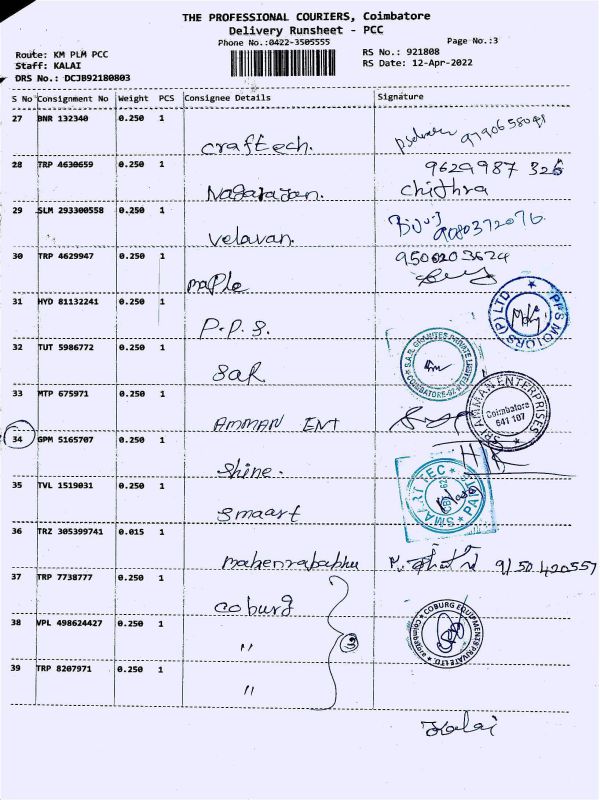 THE PROFESSIONAL COURIERS, Coimbatore
Delivery Runsheet - PCC
Phone No.:0422-3505555
Page No.:3
Route: KM PLM PCC
RS No.: 921808
Staff: KALAI
RS Date: 12-Apr-2022
DRS No.: DCJB92180803
S No Consignment No Weight PCS Consignee Details Signature
27 BNR 132340 0.250 1
craftech.
28 TRP 4630659 0.250 1
9629987 326
Nagarajan. Chithra
29 SLM 293300558 0.250 1
velavan. 9080372076
30 TRP 4629947 0.250 1
9500203624
maple
31 HYD 81132241 0.250 1
P.P.S.
PPS MOTORS (P) LTD
32 TUT 5986772 0.250 1
Sar
S.A.R. GRANITES PRIVATE LIMITED
COIMBATORE-62
33 MTP 675971 0.250 1
AMMAN ENT
SRI AMMAN ENTERPRISES
Coimbatore
641 107
34 GPM 5165707 0.250 1
Shine.
35 TVL 1519031 0.250 1
Smaart
36 TRZ 305399741 0.015 1
37 TRP 7738777 0.250 1
coburg
38 VPL 498624427 0.250 1
"
3
COBURG EQUIPMENTS PRIVATE LTD.
Coimbatore
39 TRP 8207971 0.250 1
"
Kalai